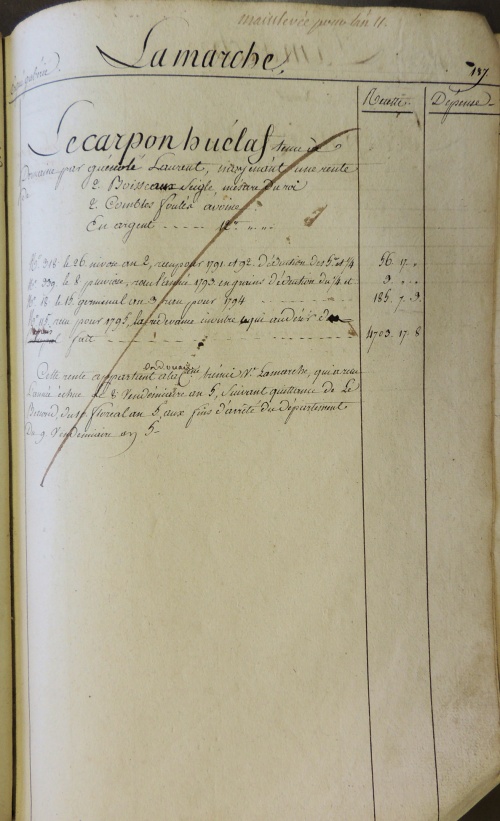 mainlevée pour l'an 11.
Lamarche.
187
Recette. Dépense.
Le carpont huélas tenu à
Domaine par guénolé Laurent, payant une rente
2. Boisseaux Seigle, mesure du roi
2. Combles foulés avoine
En argent ..... 12
N.° 318. le 26. nivose an 2, reçu pour 1791. et 92. déduction des 5.e et 1/4 56. 17. .
N.° 339. le 8. pluviose, reçu l'année 1793. en grains déduction du 1/4 et 9. . .
N.° 18. le 18 germinal an 3 reçu pour 1794 185. 7. 9.
N.° 45. reçu pour 1795, la redevance
fait 4703. 17. 8
Cette rente appartient à la Lamarche, qui a reçu
l'année échue le 8 Vendémiaire an 5, Suivant quittance de Le
floréal an 5, aux fins d'arrêté du département
Du 9 Vendémiaire an 5.